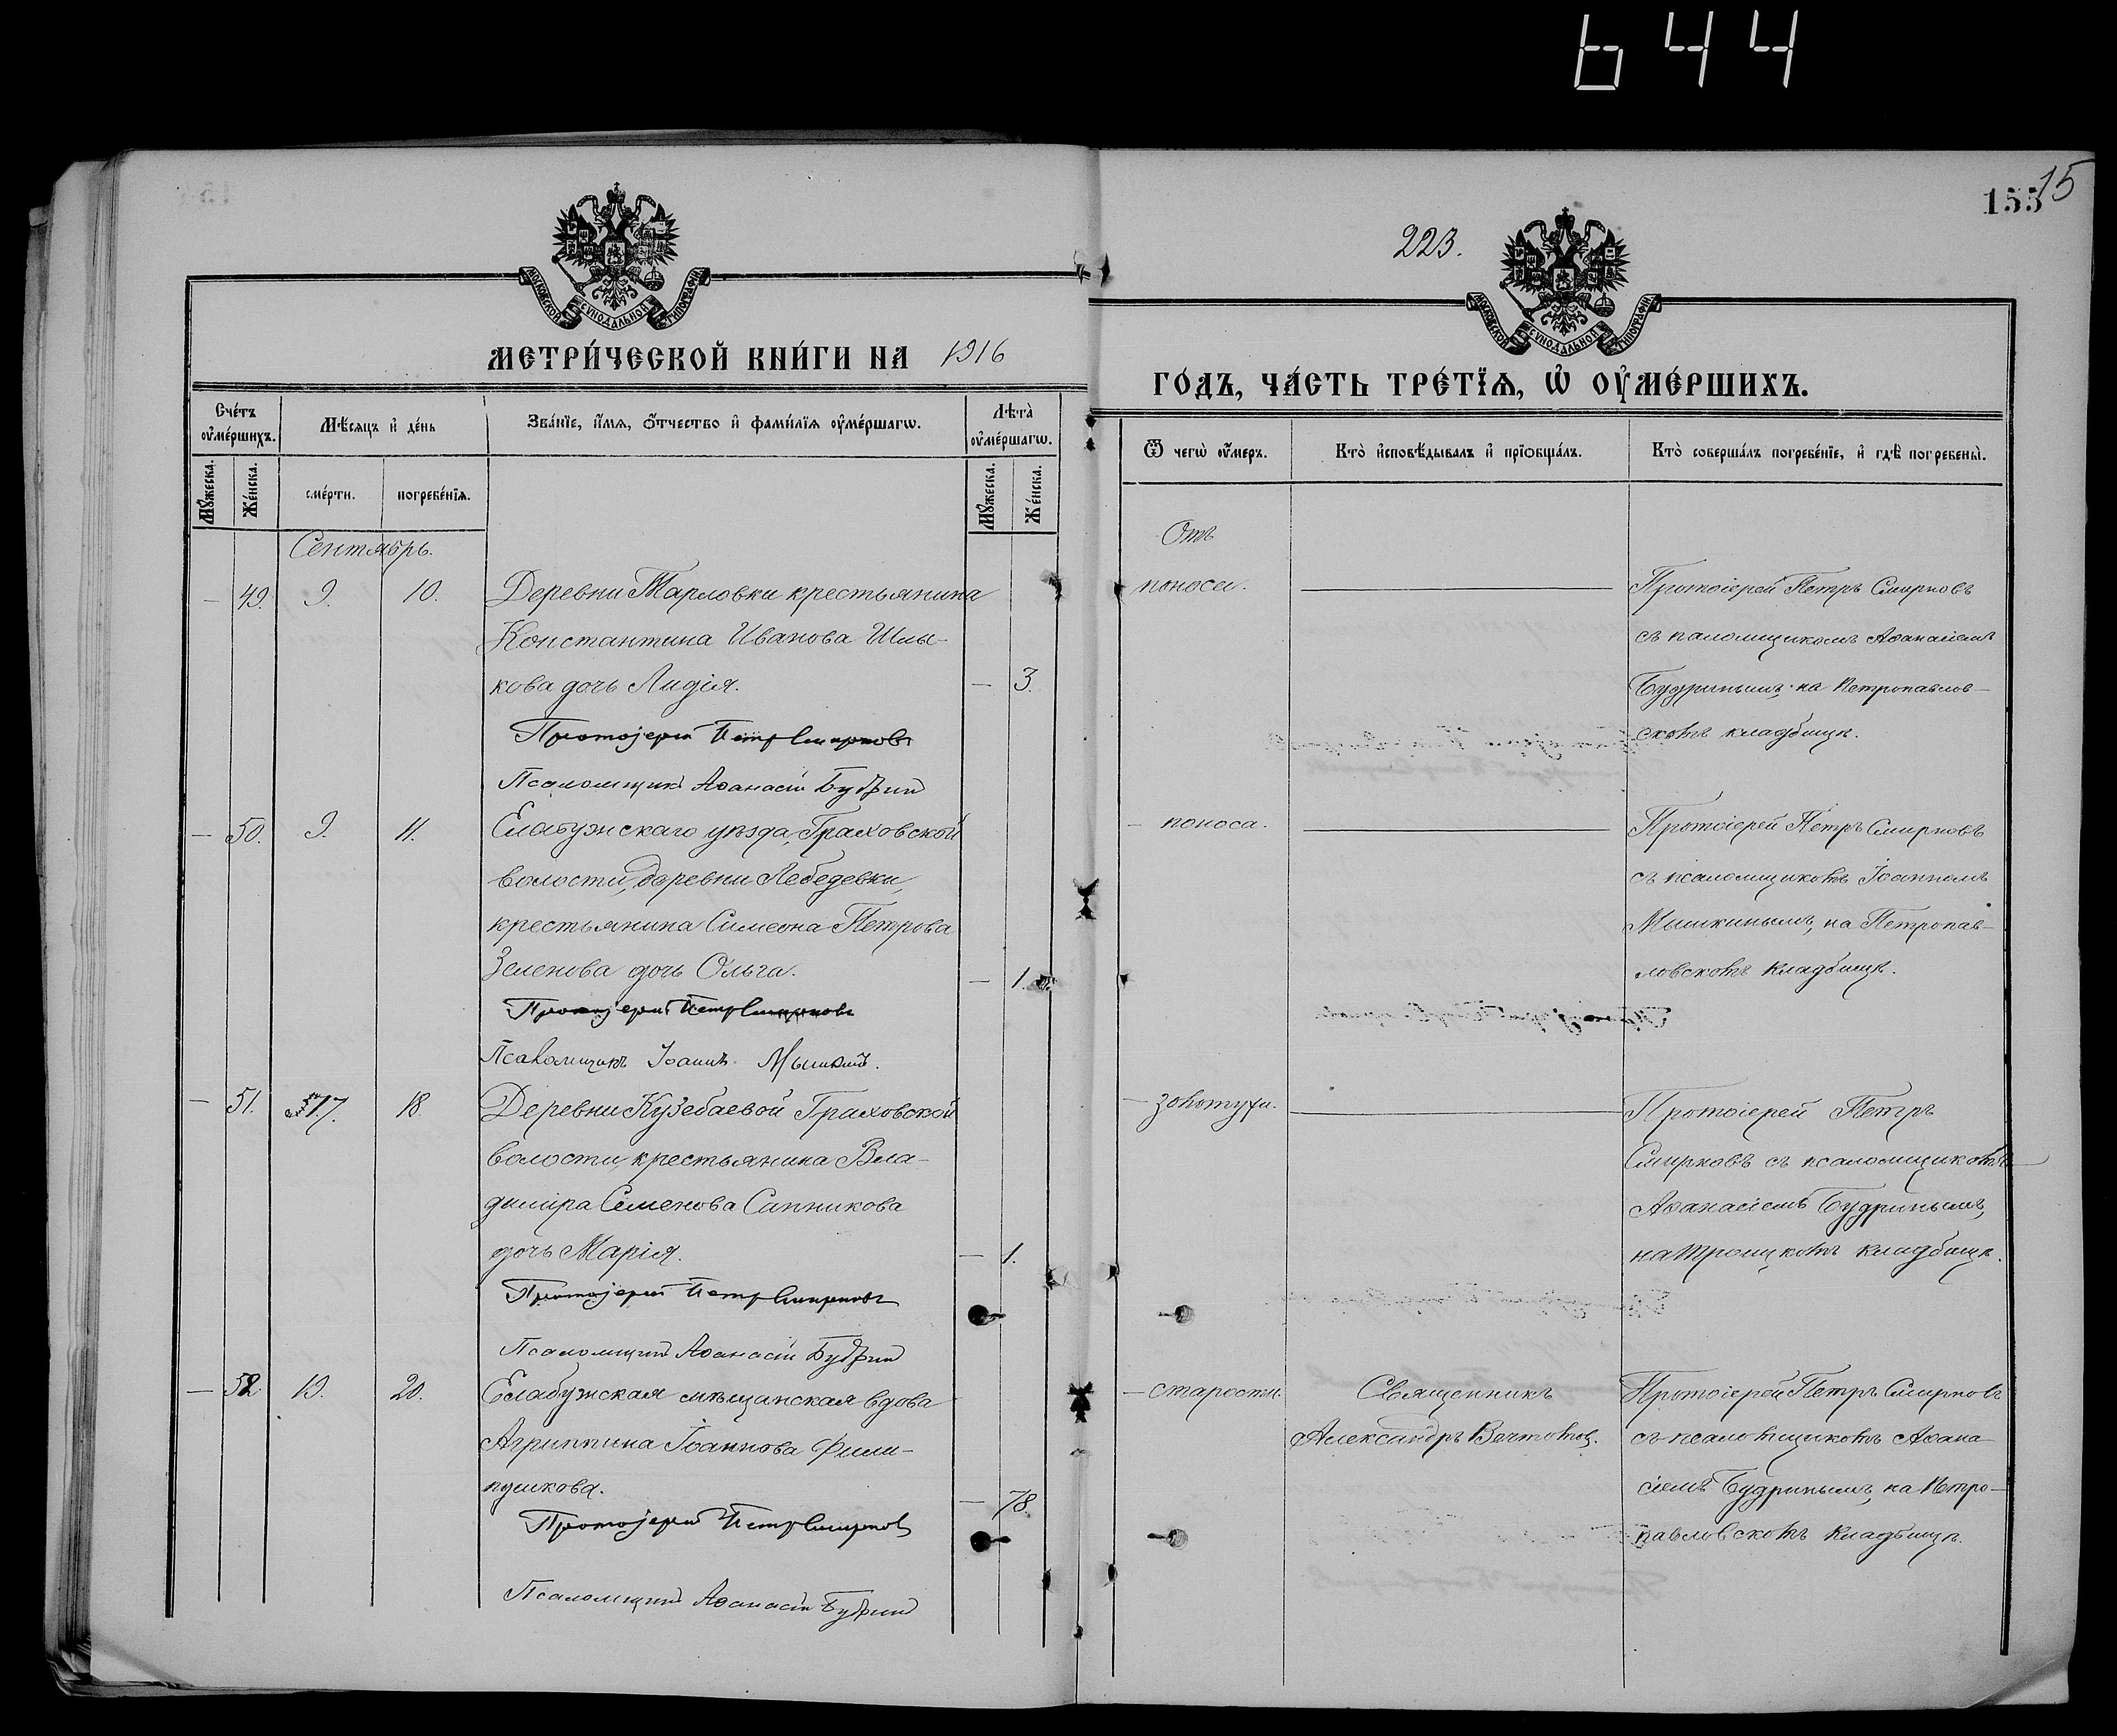 644
15
155
223.
МОСКОВСКОЙ СѴНОДАЛЬНОЙ ТИПОГРАФІИ
МОСКОВСКОЙ СѴНОДАЛЬНОЙ ТИПОГРАФІИ
МЕТРИ́ЧЕСКОЙ КНИ́ГИ НА 1916
ГО́ДЪ, ЧА́СТЬ ТРЕ́ТЇѦ, Ѡ҆ ОУ҆МЕ́РШИХЪ.
Сче́тъ оу҆ме́ршихъ.
Мѣ́сѧцъ и҆ де́нь
Зва́нїе, и҆́мѧ, ѻ҆́тчество и҆ фами́лїѧ оу҆ме́ршагѡ.
Лѣта̀ оу҆ме́ршагѡ.
Ѿ чегѡ̀ оу҆́меръ.
Кто̀ и҆сповѣ́дывалъ и҆ прїѡбща́лъ.
Кто̀ соверша́лъ погребе́нїе, и҆ гдѣ̀ погребены̀.
Мꙋ́жеска.
Же́нска.
сме́рти.
погребе́нїѧ.
Мꙋ́жеска.
Же́нска.
Сентябрь.
Отъ
— 49. 9. 10. Деревни Тарловки крестьянина
Константина Иванова Шлы-
кова дочь Лидія. — 3.
Протоіерей Петръ Смирновъ
Псаломщикъ Аѳанасій Будринъ
поноса.
Протоіерей Петръ Смирновъ
съ псаломщикомъ Аѳанасіемъ
Будринымъ, на Петропавлов-
скомъ кладбищѣ.
— 50. 9. 11. Елабужскаго уѣзда, Граховской
волости, деревни Лебедевки,
крестьянина Симеона Петрова
Зеленова дочь Ольга. — 1.
Протоіерей Петръ Смирновъ
Псаломщикъ Іоаннъ Мышкинъ.
— поноса.
Протоіерей Петръ Смирновъ
съ псаломщикомъ Іоанномъ
Мышкинымъ, на Петропав-
ловскомъ кладбищѣ.
— 51. 17. 18. Деревни Кузебаевой Граховской
волости, крестьянина Вла-
диміра Семенова Санникова
дочь Марія. — 1.
Протоіерей Петръ Смирновъ
Псаломщикъ Аѳанасій Будринъ
— золотухи.
Протоіерей Петръ
Смирновъ съ псаломщикомъ
Аѳанасіемъ Будринымъ,
на Троицкомъ кладбищѣ.
— 52. 19. 20. Елабужская мѣщанская вдова
Агриппина Іоаннова Фили-
пушкова. — 78.
Протоіерей Петръ Смирновъ
Псаломщикъ Аѳанасій Будринъ
— старости.
Священникъ
Александръ
Протоіерей Петръ Смирновъ
съ псаломщикомъ Аѳана-
сіемъ Будринымъ, на Петро-
павловскомъ кладбищѣ.